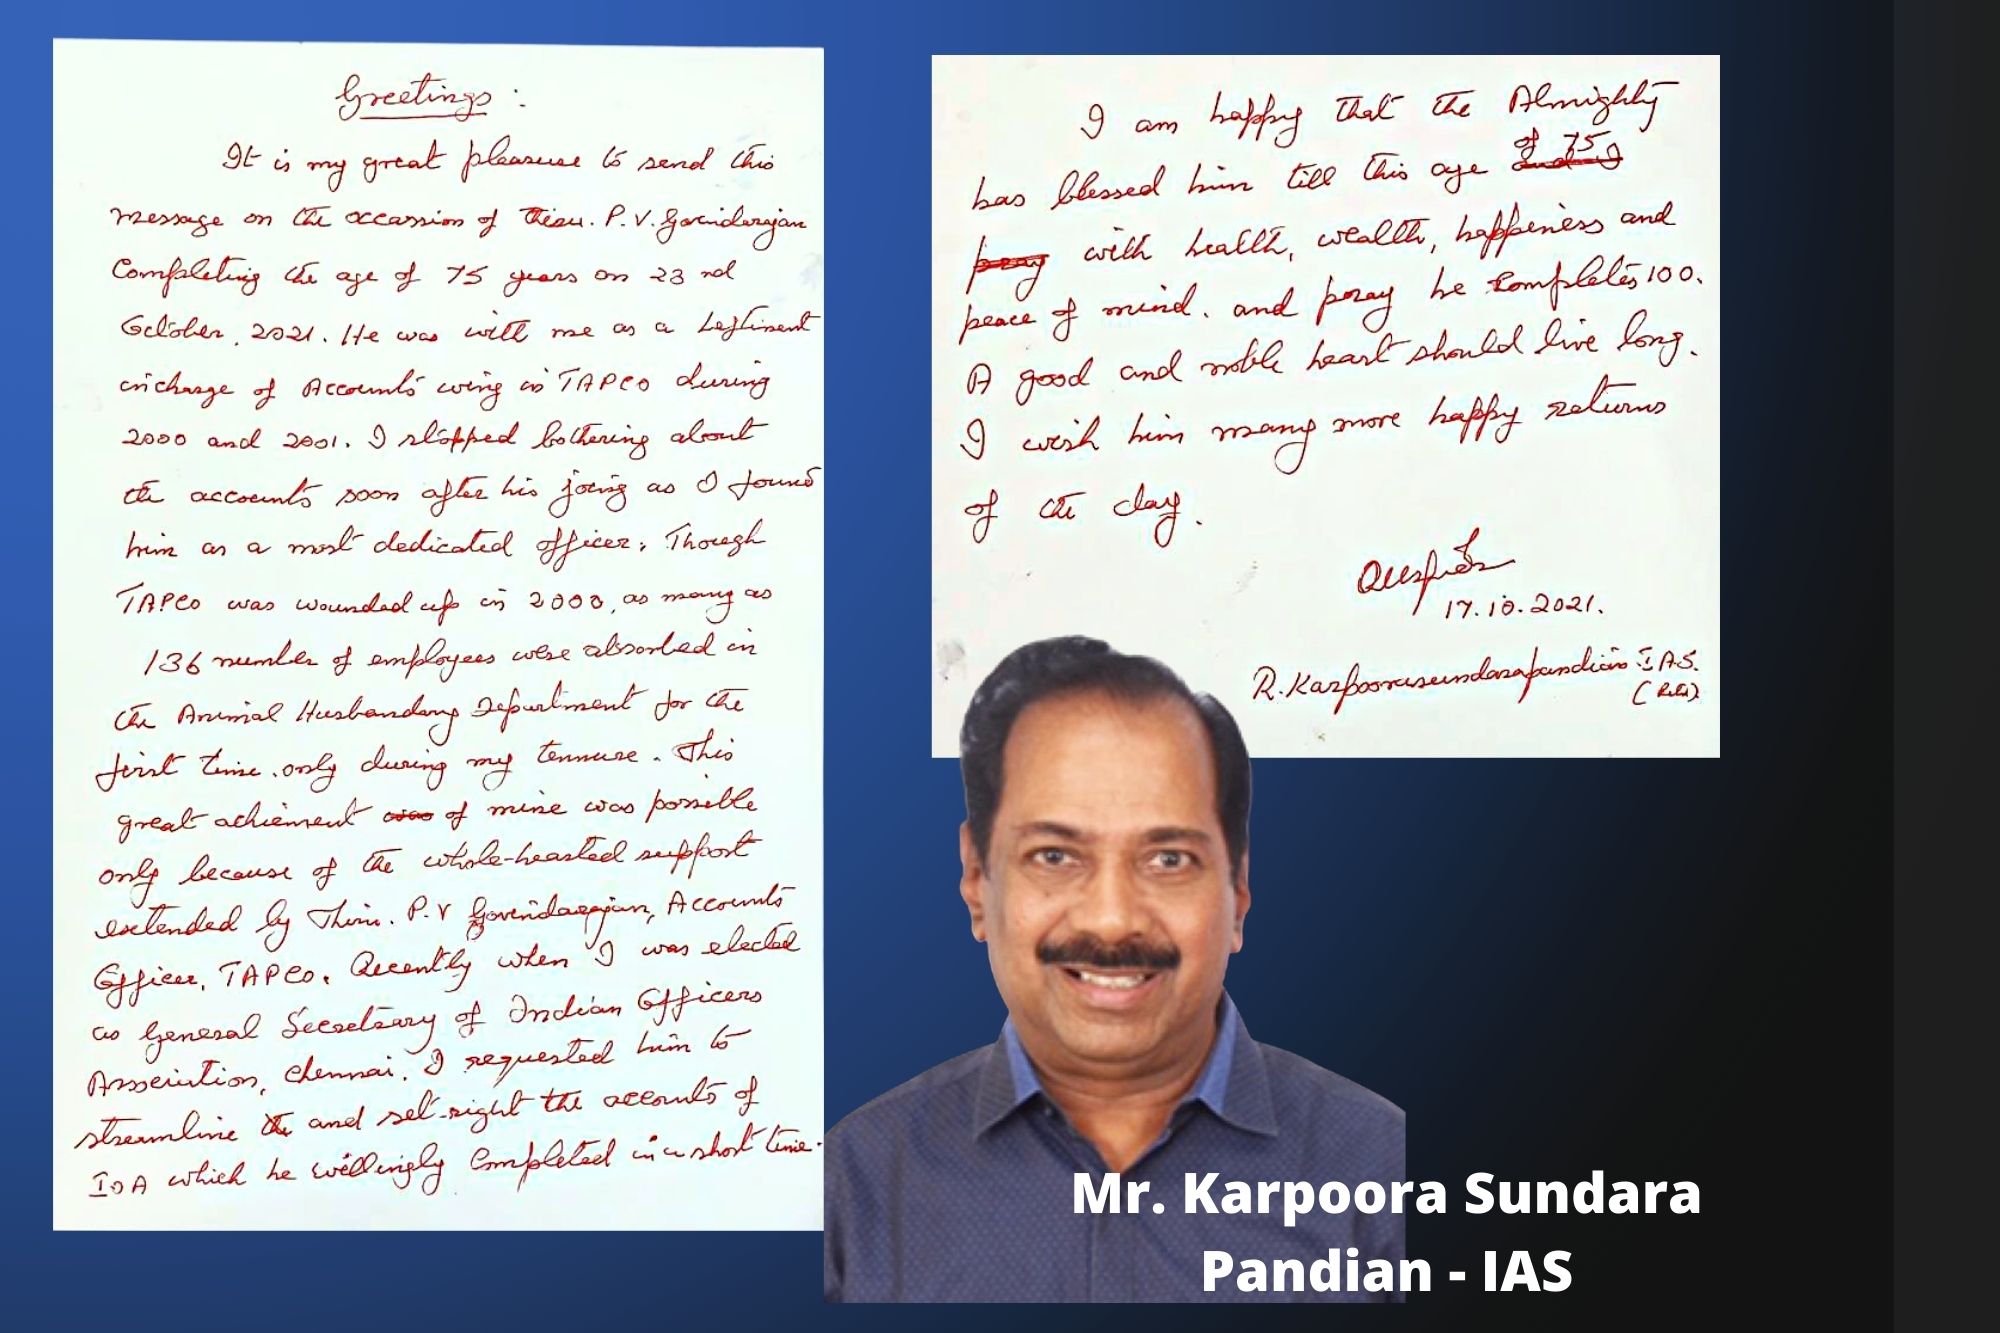 Greetings :
It is my great pleasure to send this
message on the occassion of Thiru. P.V. Govindarajan
Completing the age of 75 years on 23 rd
October, 2021. He was with me as a Leftinent
incharge of Accounts wing in TAPCO during
2000 and 2001. I stopped bothering about
the accounts soon after his joing as I found
him as a most dedicated officer. Though
TAPCO was wounded up in 2000, as many as
136 number of employees were absorbed in
the Animal Husbandary Department for the
first time only during my tennure. This
great achiement was of mine was possible
only because of the whole-hearted support
extended by Thiru. P.V Govindarajan, Accounts
Officer, TAPCO. Recently when I was elected
as General Secretary of Indian Officers
Association, Chennai, I requested him to
streamline the and set-right the accounts of
IOA which he willingly Completed in a short time.
I am happy that the Almighty
of 75
has blessed him till this age and I
pray with health, wealth, happiness and
peace of mind. and pray he Completes 100.
A good and noble heart should live long.
I wish him many more happy returns
of the day.
17.10.2021.
R. Karpoorasundarapandian I.A.S.
(Retd)
Mr. Karpoora Sundara
Pandian - IAS